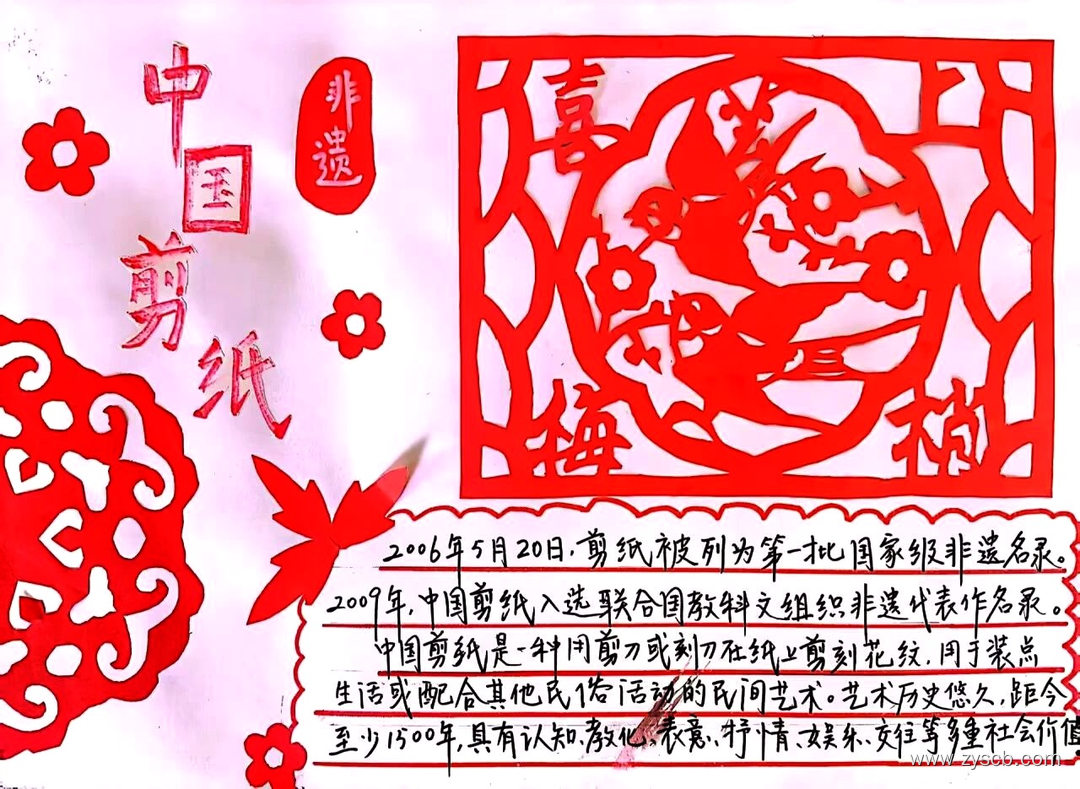 中国剪纸
非遗
喜
梅梢
2006年5月20日，剪纸被列为第一批国家级非遗名录。
2009年，中国剪纸入选联合国教科文组织非遗代表作名录。
中国剪纸是一种用剪刀或刻刀在纸上剪刻花纹，用于装点
生活或配合其他民俗活动的民间艺术。艺术历史悠久，距今
至少1500年，具有认知、教化、表意、抒情、娱乐、交往等多重社会价值
www.zyscb.com